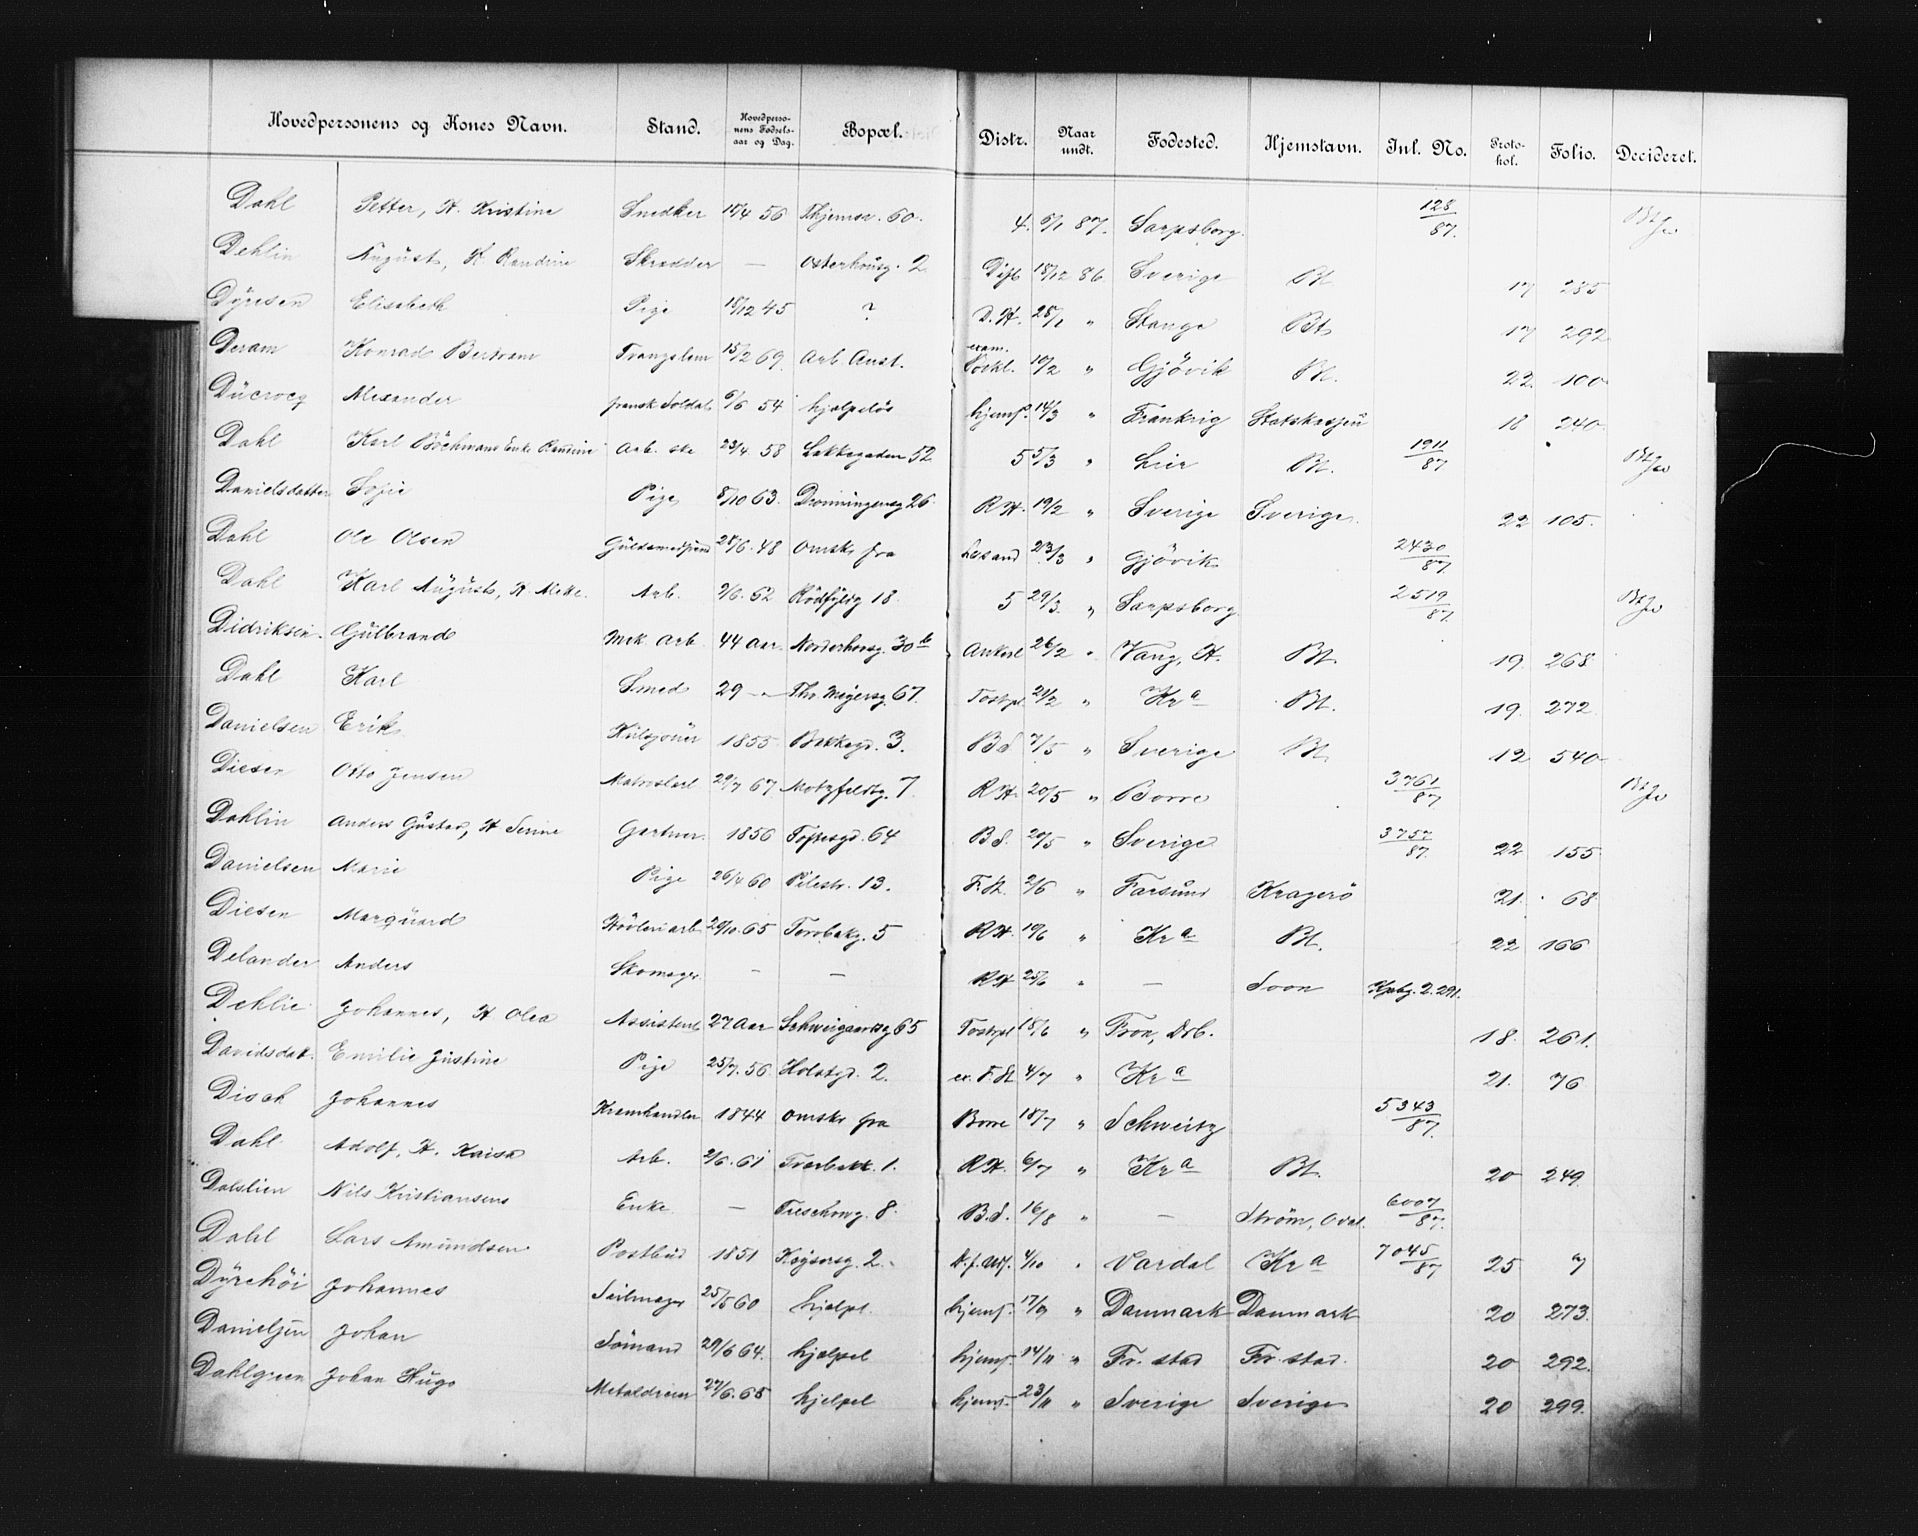 Hovedpersonens og Kones Navn. Stand. Hovedpersonens Fødselsaar og Dag. Bopæl. Distr. Naar undt. Fødested. Hjemstavn. Inl. No. Protokol. Folio. Decideret.
Dahl Petter, H. Kristine Snedker 56 60. 4. 87. Sarpsborg. 128/87.
Dehlin August, K Randine Skrædder — Osterhausg. 2 18/12 86 Sverige Bt. 17 285
Dyresen Elisabeth Pige 18/12 45 ? D. H. 28/1 " Stange Bt. 17 292
Deram Konrad Bertram Tvangslem 15/2 69. Arb. Anst. 10/2 " Gjøvik Bt. 22. 100
Ducrocq Alexander fransk Soldat 6/6 54 hjælpeløs hjemf. 14/3 " Frankrig Statskassen 18 240
Dahl Karl Enke Randine Arb. ske 23/4 58 Lakkegaden 52 5 5/3 " Lier Bt. 1911/87
Danielsdatter Sofie Pige 8/10 63. Dronningensg 26. R.H. 19/2 " Sverige Sverige. 22 105.
Dahl Ole Olsen 28/6. 48 omsk. fra 23/3 " Gjøvik 2430/87.
Dahl Karl August, H. Arb. 2/6. 62 18 5 29/3. " Sarpsborg 2519/87.
Didriksen Gulbrand Mek. Arb. 44 Aar. Norderhovsg. 30 b Ankerl 26/2 " Vang, H. Bt. 19. 268
Dahl Karl Smed 29 — " — Th. Meyersg. 67. 21/2 " Kra Bt. 19. 272
Danielsen Erik 1855 Bakkegd. 3. B d 7/5 " Sverige Bt. 12 540
Diesen Otto Jensen 29/7 67. Motzfeldtg. 7. R.H. 20/5 " Borre 3761/87
Dahlin Anders Gustav, H Serine Gartner. 1856 Toftesgd. 64 B d. 20/5 " Sverige 3757/87. 22 155.
Danielsen Marie Pige 26/4 60 Pilestr. 13. F. St. 2/6 " Farsund Kragerø 21. 68
Diesen Marquard Høvleriarb. 29/10. 65 Torvbakg. 5 R.H. 10/6 " Kra Bt. 22 166
Delander Anders Skomager. — — R H 25/6 " — Soon 2. 291.
Dehlie Johannes, H Olea Assistent 27 Aar Schweigaardsg 65 18/6 " Fron, Drb. 18. 261.
Davidsdat. Emilie Justine Pige 25/7. 56 Holstgd. 2. ex. F. St 4/7 " Kra 21. 76
Disch Johannes Kramhandler 1844 omsk. fra Borre 18/7 " Schweitz 5343/87.
Dahl. Adolf, H. Kaisa Arb. 2/6. 61 Tværbakk. 1. R.H. 6/7 " Kra Bt. 20 249.
Dalslien Nils Kristiansens Enke — Treschowg. 8. B. d. 16/8 " — Strøm, Odal. 6007/87.
Dahl Lars Amundsen Postbud 1851 2. 4/10 " Vardal Kra 7045/87 25 7
Dyrehøi Johannes Seilmager 25/5 60 hjælpl. hjemf. 17/9 " Danmark Danmark 20 273.
Danielsen Johan Sømand 29/6 64. hjælpel hjemf. 14/11 " Fr. stad Fr. stad. 20 292.
Dahlgreen Johan Hugo 27/6. 65 hjelpel hjemf. 23/11 " Sverige Sverige 20 299.